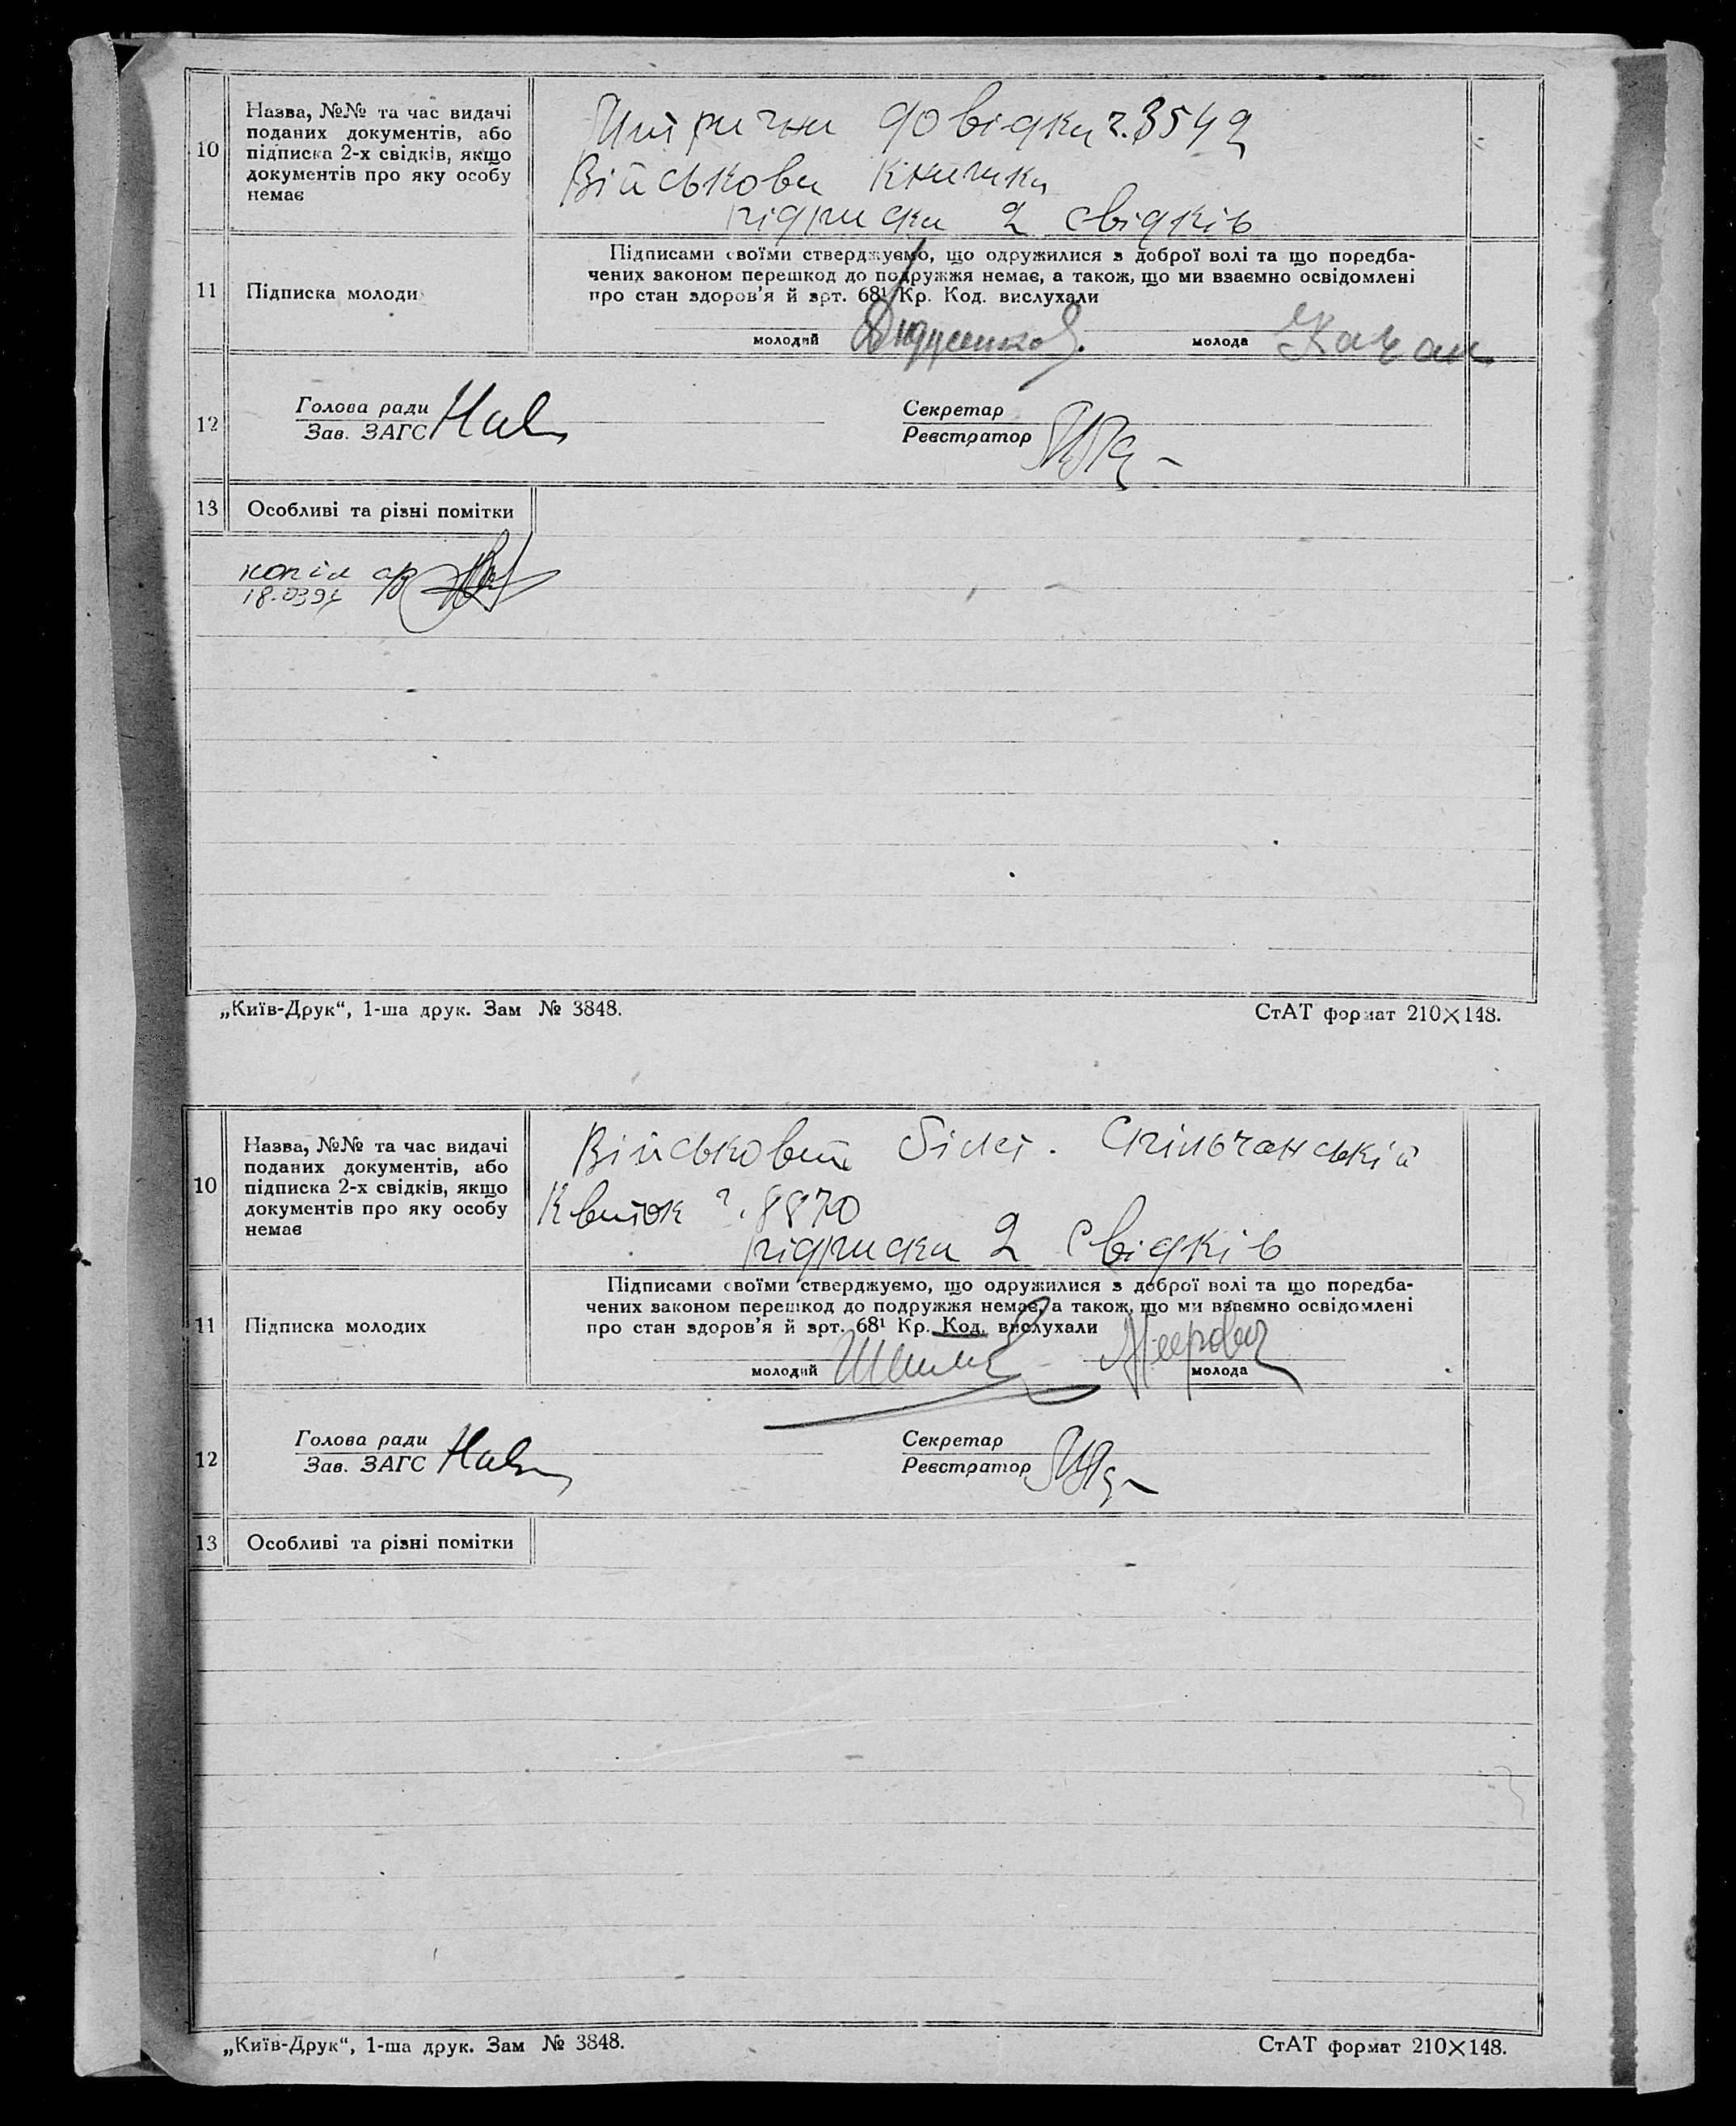 10
Назва, №№ та час видачі
поданих документів, або
підписка 2-х свідків, якщо
документів про яку особу
немає
довідка ч. 3542
Військова книжка
підписка 2 свідків
11
Підписка молоди
Підписами своїми стверджуємо, що одружилися з доброї волі та що поредба-
чених законом перешкод до подружжя немає, а також, що ми взаємно освідомлені
про стан здоров'я й арт. 68¹ Кр. Код. вислухали
молодий
молода Каган
12
Голова ради
Зав. ЗАГС
Секретар
Реєстратор
13
Особливі та різні помітки
копія
„Київ-Друк“, 1-ша друк. Зам № 3848.
СтАТ формат 210×148.
10
Назва, №№ та час видачі
поданих документів, або
підписка 2-х свідків, якщо
документів про яку особу
немає
Військовий білет. Спільчанський
Квиток ч. 8870
підписка 2 свідків
11
Підписка молодих
Підписами своїми стверджуємо, що одружилися з доброї волі та що поредба-
чених законом перешкод до подружжя немає, а також, що ми взаємно освідомлені
про стан здоров'я й арт. 68¹ Кр. Код. вислухали
молодий
молода
12
Голова ради
Зав. ЗАГС
Секретар
Реєстратор
13
Особливі та різні помітки
„Київ-Друк“, 1-ша друк. Зам № 3848.
СтАТ формат 210×148.